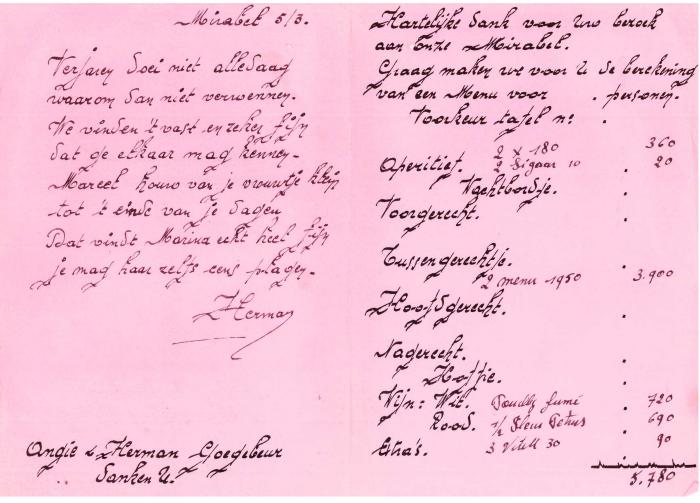 Mirabel 5/3.
Verjaren doei niet alledaag
waarom dan niet verwennen.
We vinden 't vast en zeker fijn
dat ge elkaar mag kennen.
Marcel houw van je vrouwtje klein
tot 't einde van je dagen
Dat vindt Marina echt heel fijn
je mag haar zelfs eens plagen.
Herman
Angie & Herman Goegebeur
Danken U.
Hartelijke dank voor Uw bezoek
aan Onze Mirabel.
Graag maken we voor U de berekening
van een Menu voor . personen.
Voorkeur tafel nr .
2 x 180 360
Aperitief. 2 Sigaar 10 . 20
Wachtbordje.
Voorgerecht. .
Tussengerechtje. .
2 menu 1950 3.900
Hoofdgerecht. .
Nagerecht. .
Koffie. .
Wijn: Wit. Pouilly fumé . 720
Rood. 1/2 Petrus . 690
Extra's. 3 Vitell 30 . 90
5.780